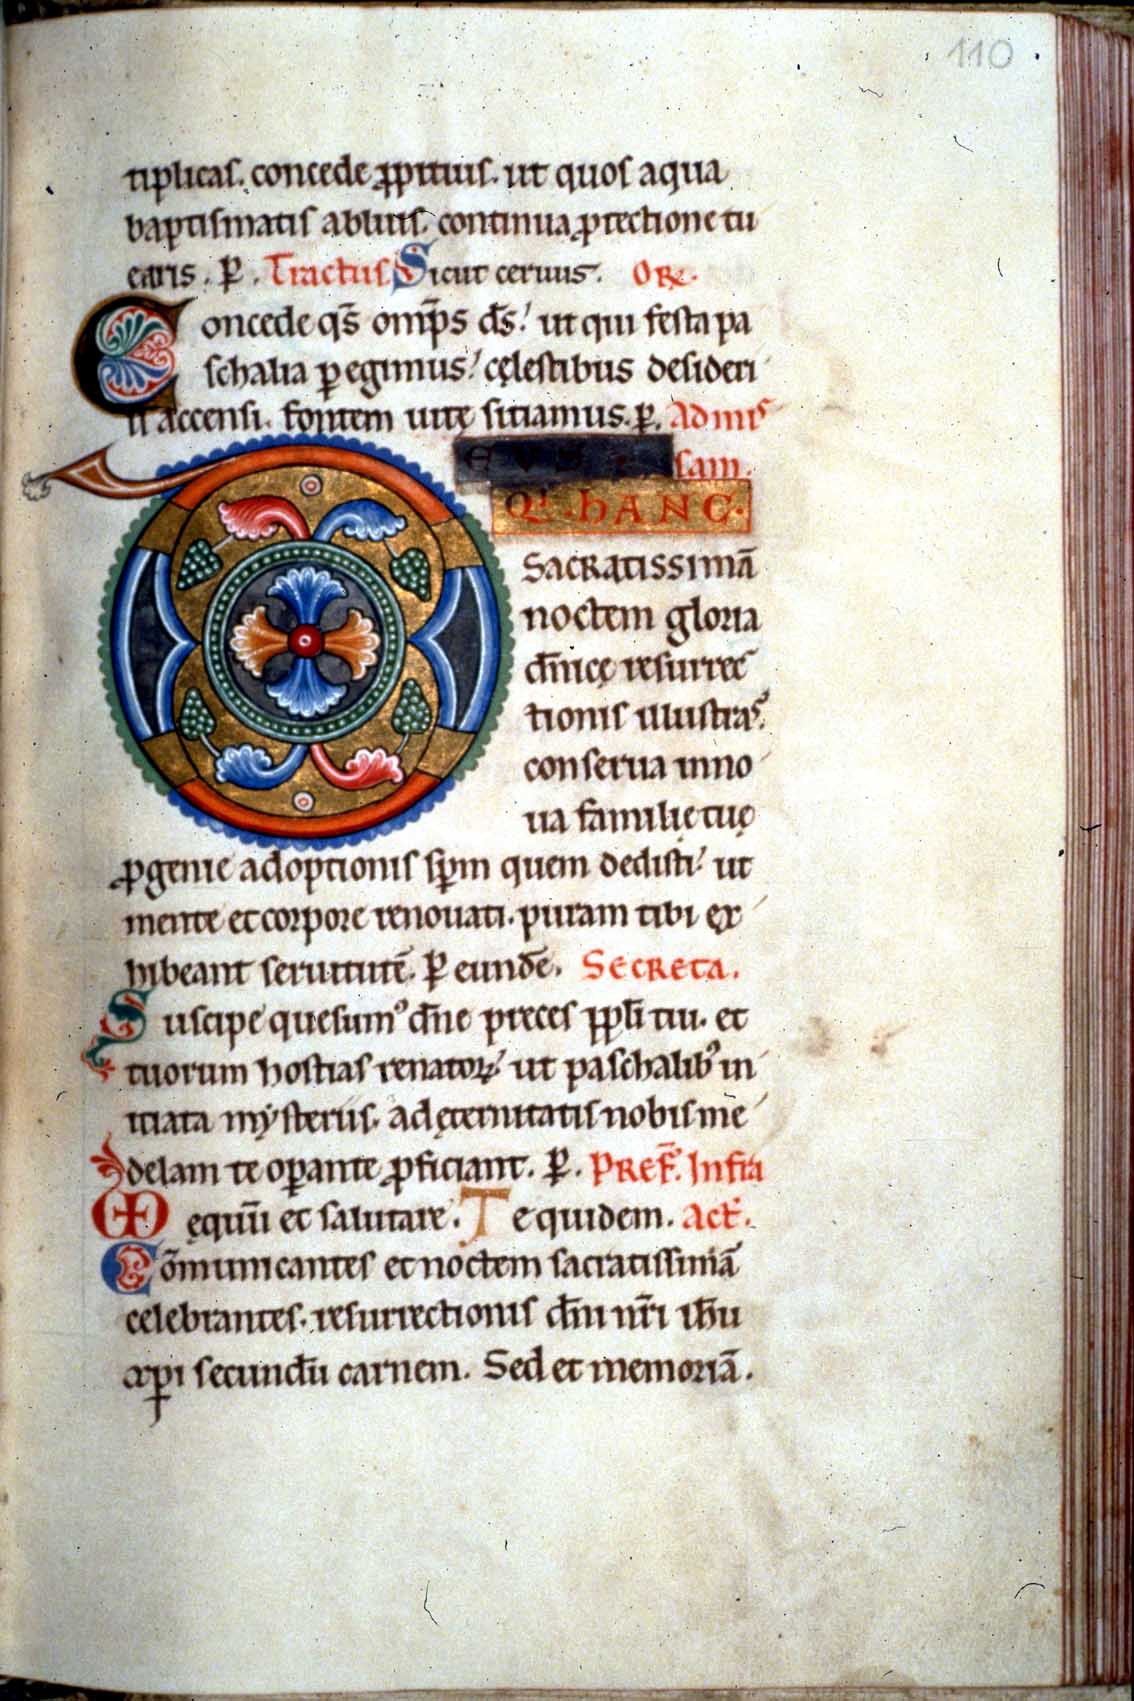 110
tiplicas. concede ꝓpitius. ut quos aqua
baptismatis abluis. continua ꝓtectione tu
earis. P̱. Tractus Sicut ceruus. OR̃.
Concede qs̄ omp̄s ds̄! ut qui festa pa
schalia ꝑegimus! cęlestibus desideri
is accensi. fontem uitę sitiamus. ꝑ. Ad mis
DEUS sam.
Qͥ. HANC.
Sacratissimā
noctem gloria
dn̄icę resurrec
tionis illustras!
conserua in no
ua familię tuę
ꝓgenie adoptionis sp̄m quem dedisti! ut
mente et corpore renouati. puram tibi ex
hibeant seruitutē. P̱ eundē. Secreta.
Suscipe quesumꝰ dn̄e preces ppl̄i tui. et
tuorum hostias renatoꝝ! ut paschalibꝰ in
itiata mysteriis. ad ęternitatis nobis me
delam te oꝑante ꝓficiant. P̱. PREF̄. Infra
ęquū et salutare. Te quidem. Act̄.
Cōmunicantes et noctem sacratissimā
celebrantes. resurrectionis dn̄i nr̄i ih̄u
xp̄i secundū carnem. Sed et memoriā.